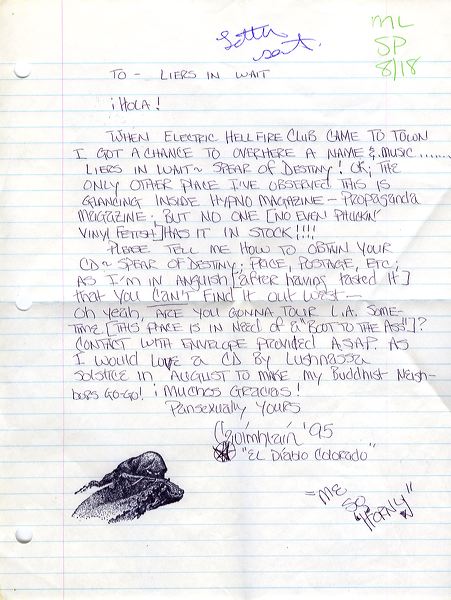 Letter
sent.
ML
SP
8/18
TO - LIERS IN WAIT
¡HOLA!
WHEN ELECTRIC HELLFIRE CLUB CAME TO TOWN
I GOT A CHANCE TO OVERHERE A NAME & MUSIC.......
LIERS IN WAIT~ SPEAR OF DESTINY! OK; THE
ONLY OTHER PLACE I'VE OBSERVED THIS IS
GLANCING INSIDE HYPNO MAGAZINE - PROPAGANDA
MAGAZINE; BUT NO ONE [NO EVEN PHUCKIN'
VINYL FETISH] HAS IT IN STOCK!!!!
PLEASE TELL ME HOW TO OBTAIN YOUR
CD~ SPEAR OF DESTINY; PLACE, POSTAGE, ETC;
AS I'M IN ANGUISH [after having tasted it]
that you CAN'T FIND It out West—
Oh yeah, ARE YOU GONNA TOUR L.A. SOME-
TIME [THIS PLACE IS IN NEED OF A "BOOT TO THE ASS"]?
CONTACT WITH ENVELOPE PROVIDED A.S.A.P. AS
I WOULD LOVE a CD BY
SOLSTICE IN AUGUST TO MAKE MY BUDDHIST NEIGH-
BORS GO-GO! ¡MUCHOS GRACIAS!
PANSEXUALLY YOURS
'95
"EL DIABLO COLORADO"
"ME
SO
HORNY"